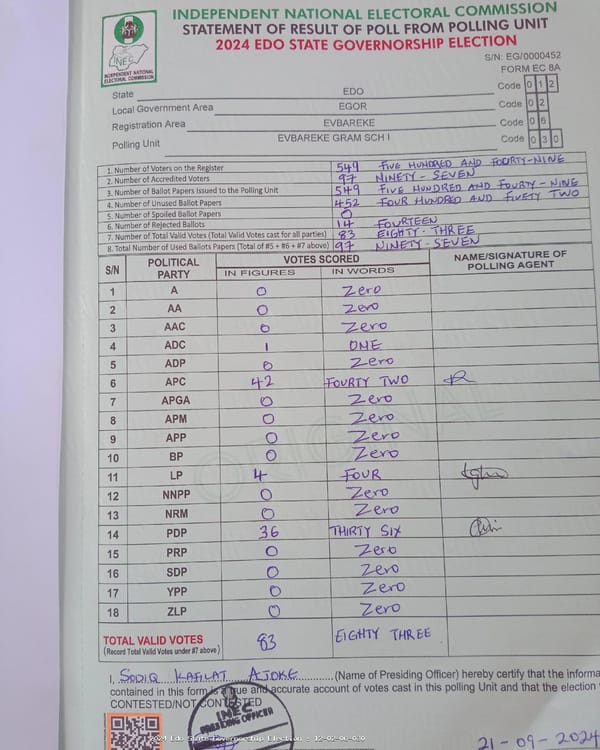 INDEPENDENT NATIONAL ELECTORAL COMMISSION
STATEMENT OF RESULT OF POLL FROM POLLING UNIT
2024 EDO STATE GOVERNORSHIP ELECTION
INEC
INDEPENDENT NATIONAL
ELECTORAL COMMISSION
S/N: EG/0000452
FORM EC 8A
State EDO Code 0 1 2
Local Government Area EGOR Code 0 2
Registration Area EVBAREKE Code 0 6
Polling Unit EVBAREKE GRAM SCH I Code 0 3 0
1. Number of Voters on the Register 549 FIVE HUNDRED AND FOURTY-NINE
2. Number of Accredited Voters 97 NINETY-SEVEN
3. Number of Ballot Papers Issued to the Polling Unit 549 FIVE HUNDRED AND FOURTY-NINE
4. Number of Unused Ballot Papers 452 FOUR HUNDRED AND FIVETY TWO
5. Number of Spoiled Ballot Papers 0
6. Number of Rejected Ballots 14 FOURTEEN
7. Number of Total Valid Votes (Total Valid Votes cast for all parties) 83 EIGHTY-THREE
8. Total Number of Used Ballots Papers (Total of #5 + #6 + #7 above) 97 NINETY-SEVEN
S/N POLITICAL PARTY VOTES SCORED NAME/SIGNATURE OF POLLING AGENT
IN FIGURES IN WORDS
1 A 0 Zero
2 AA 0 Zero
3 AAC 0 Zero
4 ADC 1 ONE
5 ADP 0 Zero
6 APC 42 FOURTY TWO
7 APGA 0 Zero
8 APM 0 Zero
9 APP 0 Zero
10 BP 0 Zero
11 LP 4 FOUR
12 NNPP 0 Zero
13 NRM 0 Zero
14 PDP 36 THIRTY SIX
15 PRP 0 Zero
16 SDP 0 Zero
17 YPP 0 Zero
18 ZLP 0 Zero
TOTAL VALID VOTES 83 EIGHTY THREE
(Record Total Valid Votes under #7 above)
I, SODIQ KAFILAT AJOKE (Name of Presiding Officer) hereby certify that the informa
contained in this form is a true and accurate account of votes cast in this polling Unit and that the election
CONTESTED/NOT CONTESTED
INEC
PRESIDING OFFICER
2024 Edo State Governorship Election - 12-02-06-030
21-09-2024